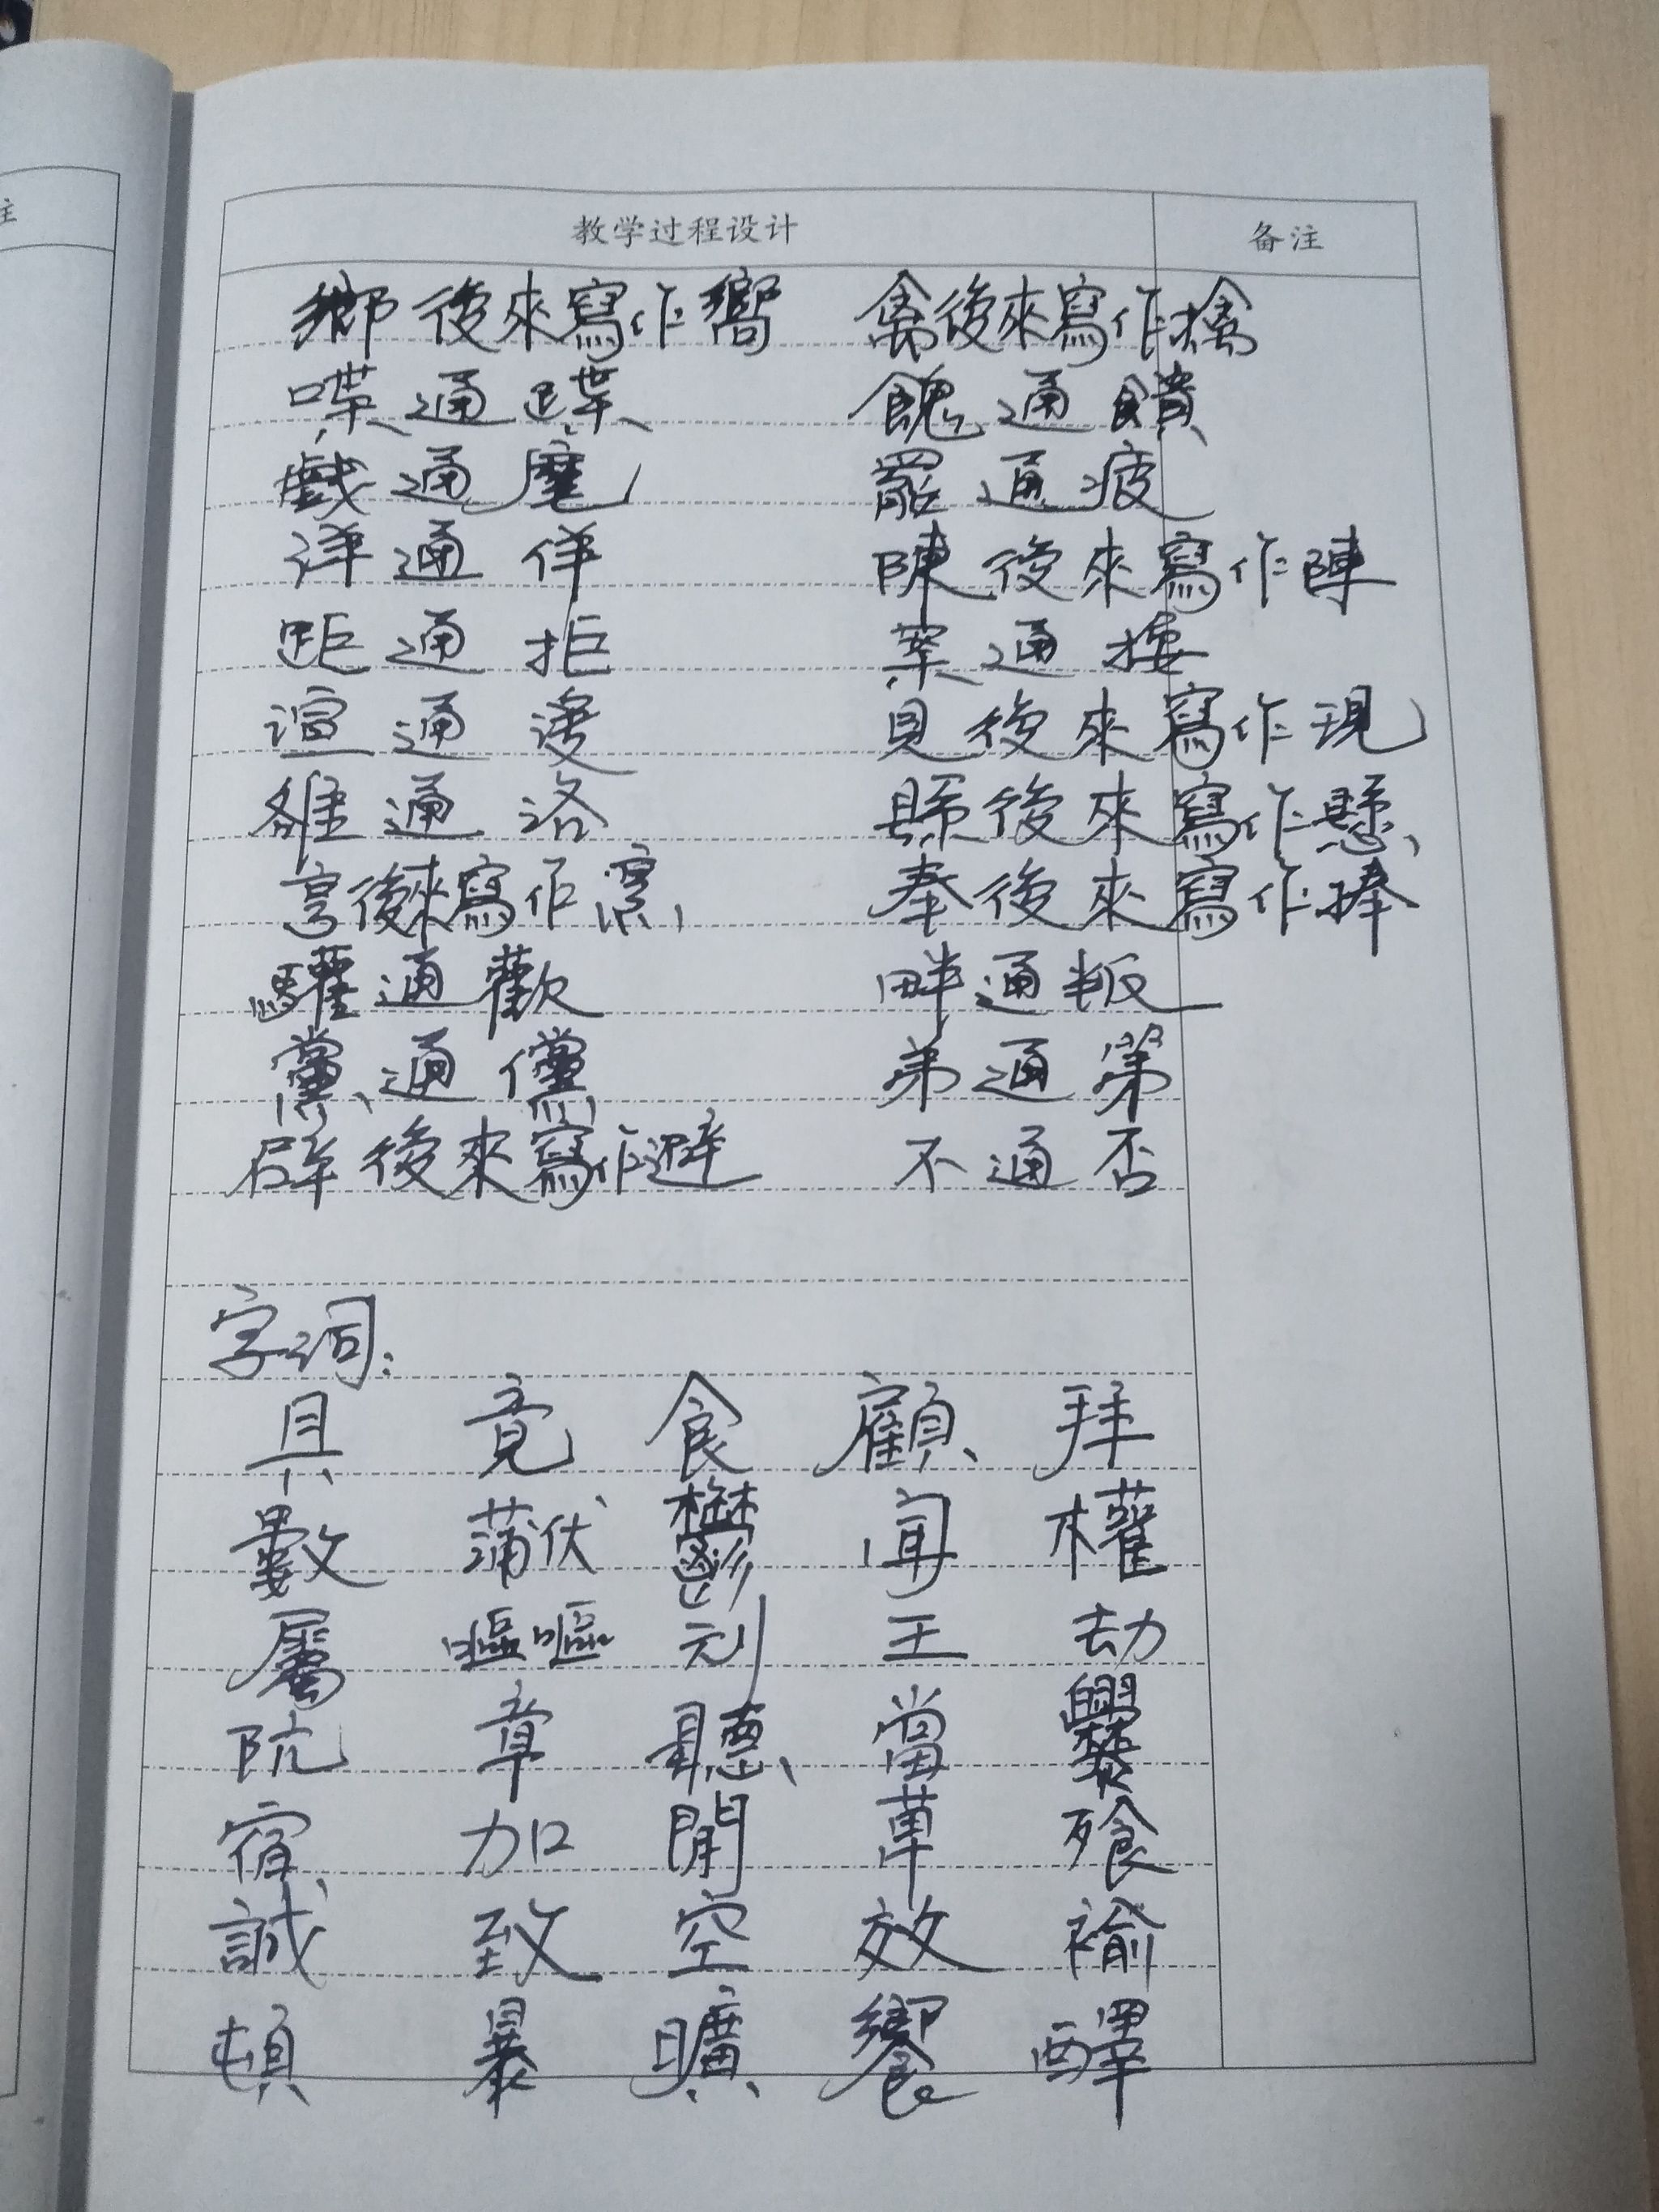 主
教学过程设计 备注
鄉後來寫作嚮 禽後來寫作擒
喋通蹀 餽通饋
戲通麾 罷通疲
詳通佯 陳後來寫作陣
距通拒 摟
諠通諼 見後來寫作現
雒通洛 縣後來寫作懸
亨後來寫作烹 奉後來寫作捧
驩通歡 畔通叛
黨通儻 弟通第
辟後來寫作避 不通否
字词:
具 竟 食 顧 拜
數 蒲伏 鬱 闻 權
屬 嘔嘔 刓 王 劫
阬 章 聽 當 爨
宿 加 開 草 飱
誠 致 空 效 褕
頓 暴 曠 饗 醳